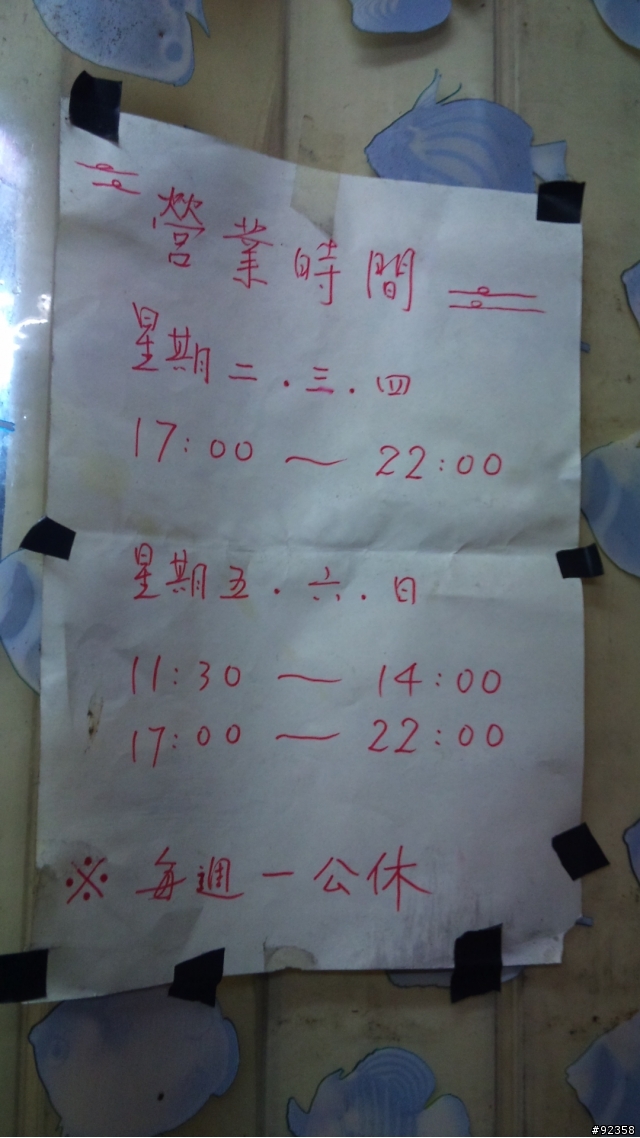 營業時間
星期二.三.四
17:00 ~ 22:00
星期五.六.日
11:30 ~ 14:00
17:00 ~ 22:00
※ 每週一公休
#92358